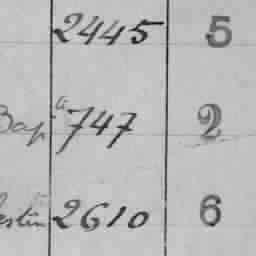 2445 5
Bap 747 2
estin 2610 6